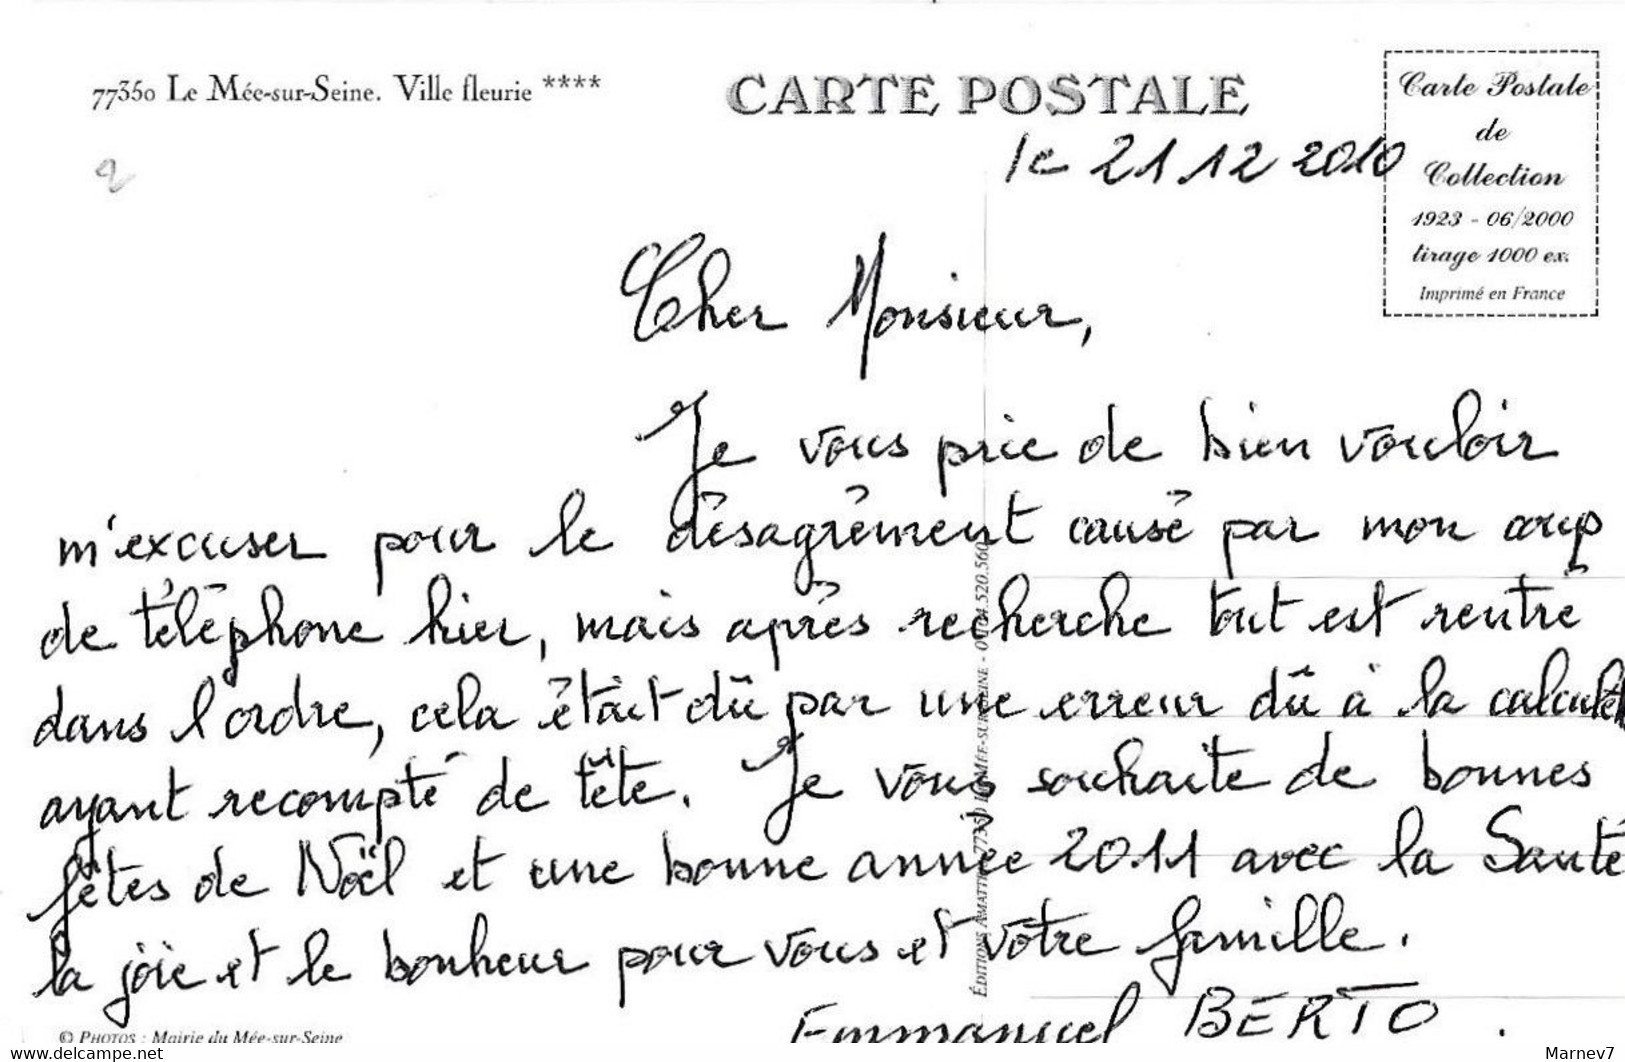 77350 Le Mée-sur-Seine. Ville fleurie ****
CARTE POSTALE
Carte Postale
de
Collection
1923 - 06/2000
tirage 1000 ex.
Imprimé en France
le 21 12 2010
Cher Monsieur,
Je vous prie de bien vouloir
m'excuser pour le désagrément causé par mon coup
de téléphone hier, mais après recherche tout est rentré
dans l'ordre, cela était dû par une erreur dû à la
ayant recompté de tête. Je vous souhaite de bonnes
fêtes de Noël et une bonne année 2011 avec la Santé
la joie et le bonheur pour vous et vôtre famille.
Emmanuel BERTO.
ÉDITIONS AMATTI 77350 LE MÉE-SUR-SEINE
© PHOTOS : Mairie du Mée-sur-Seine
www.delcampe.net
Marnev7